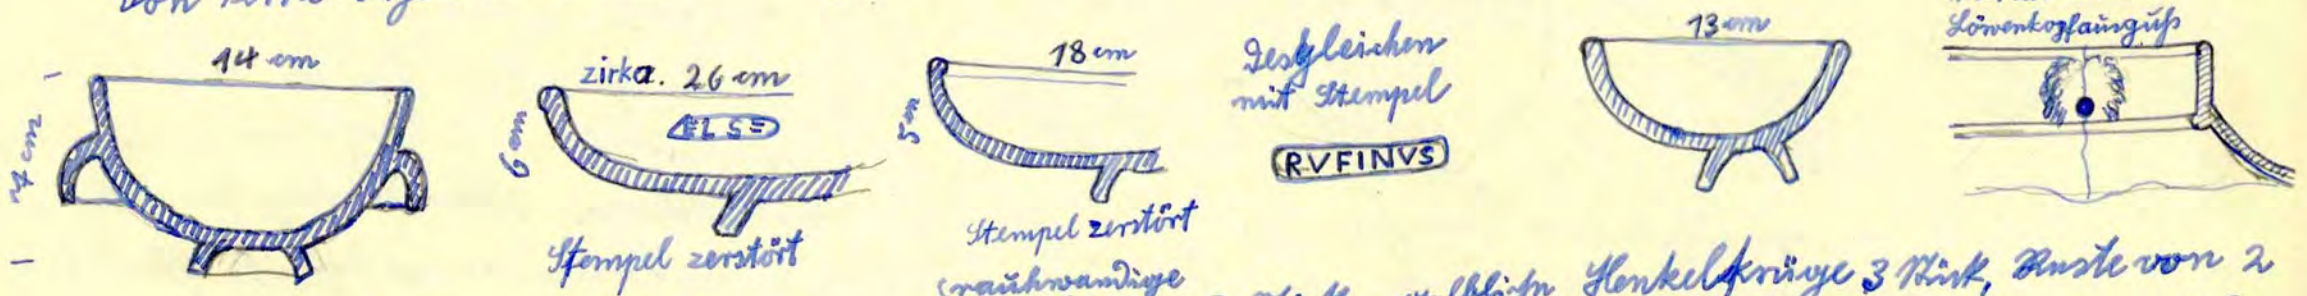 von
14 cm
7 cm
zirka. 26 cm
6 cm
ELSE
Stempel zerstört
18 cm
5 cm
Stempel zerstört
Desgleichen
mit Stempel
RVFINVS
13 cm
Löwenkopfausguß
rauhwandige
Henkelkrüge 3 Stück, Reste von 2